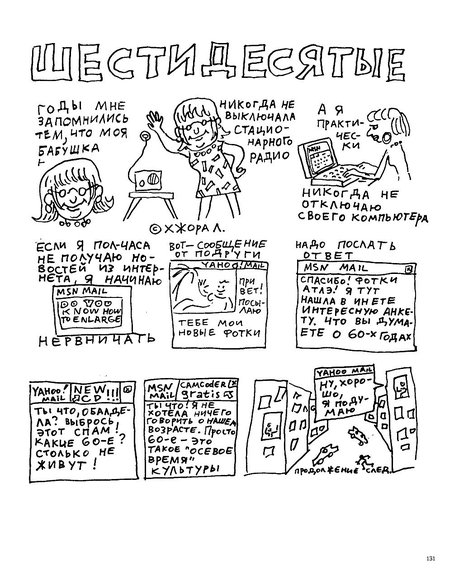 ШЕСТИДЕСЯТЫЕ
ГОДЫ МНЕ
ЗАПОМНИЛИСЬ
ТЕМ, ЧТО МОЯ
БАБУШКА
НИКОГДА НЕ
ВЫКЛЮЧАЛА
СТАЦИО-
НАРНОГО
РАДИО
А Я
ПРАКТИ-
ЧЕС-
КИ
НИКОГДА НЕ
ОТКЛЮЧАЮ
СВОЕГО КОМПЬЮТЕРА
© ХЖОРА Л.
ЕСЛИ Я ПОЛ-ЧАСА
НЕ ПОЛУЧАЮ НО-
ВОСТЕЙ ИЗ ИНТЕР-
НЕТА, Я НАЧИНАЮ
MSN MAIL
DO YOU
KNOW HOW
TO ENLARGE
НЕРВНИЧАТЬ
ВОТ—СООБЩЕНИЕ
ОТ ПОДРУГИ
YAHOO! MAIL
ПРИ
ВЕТ!
ПОСЫ-
ЛАЮ
ТЕБЕ МОИ
НОВЫЕ ФОТКИ
НАДО ПОСЛАТЬ
ОТВЕТ
MSN MAIL
СПАСИБО! ФОТКИ
АТАЗ! Я ТУТ
НАШЛА В ИНЕТЕ
ИНТЕРЕСНУЮ АНКЕ-
ТУ. ЧТО ВЫ ДУМА-
ЕТЕ О 60-Х ГОДАХ
YAHOO!
MAIL
NEW
!!!
ТЫ ЧТО, ОБАЛДЕ-
ЛА? ВЫБРОСЬ
ЭТОТ СПАМ!
КАКИЕ 60-Е?
СТОЛЬКО НЕ
ЖИВУТ!
MSN
MAIL
CAMCODER
gratis
ТЫ ЧТО! Я НЕ
ХОТЕЛА НИЧЕГО
ГОВОРИТЬ О НАШЕМ
ВОЗРАСТЕ. ПРОСТО
60-Е — ЭТО
ТАКОЕ "ОСЕВОЕ
ВРЕМЯ"
КУЛЬТУРЫ
YAHOO MAIL
НУ, ХОРО-
ШО,
Я ПОДУ-
МАЮ
ПРОДОЛЖЕНИЕ СЛЕД.
131